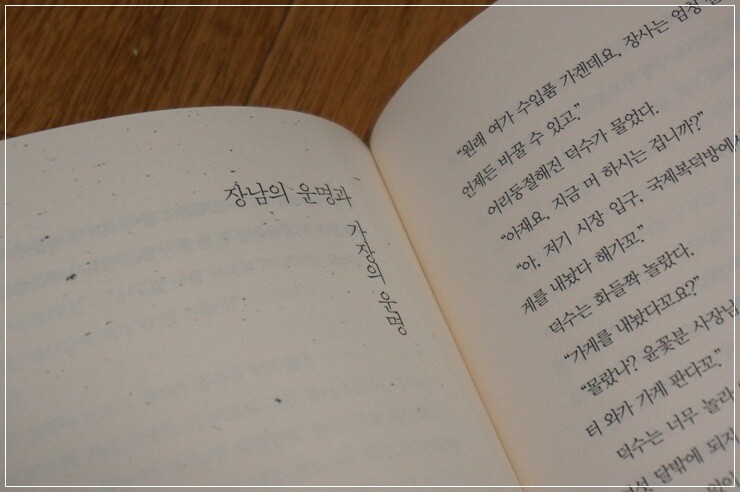 장남의 운명과
가장의 아픔
“원래 여가 수입품 가겐데요, 장사는 엄청
언제든 바꿀 수 있고.”
어리둥절해진 덕수가 물었다.
“아재요, 지금 머 하시는 겁니까?”
“아, 저기 시장 입구, 국제복덕방에서
게를 내놨다 해가꼬.”
덕수는 화들짝 놀랐다.
“가게를 내놨다꼬요?”
“몰랐나? 윤꽃분 사장님
터 와가 가게 판다꼬.”
덕수는 너무 놀라
달밖에 되지